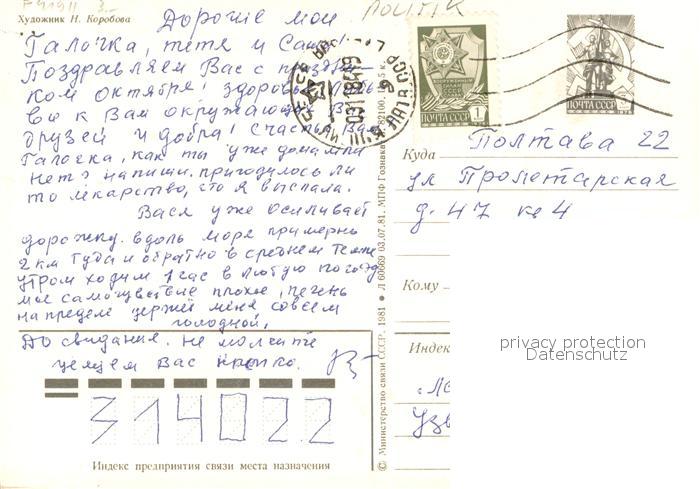 Художник Н. Коробова
POLITIK
Дорогие мои
Галочка, тётя и Саша!
Поздравляем Вас с праздни-
ком Октября! здоровья любви
вы к Вам окружающих Вас
друзей и добра! Счастья Вам
Галочка, как ты уже дома или
нет? напиши. пригодилось ли
то лекарство, что я выслала.
Вася уже осиливает
дорожку вдоль моря примерно
2 км туда и обратно в среднем темпе
утром ходим 1 час в любую погоду
мое самочувствие плохое, печень
на пределе держит меня совсем
голодной,
До свидания. не молчите
целуем Вас крепко.
314022
Индекс предприятия связи места назначения
© Министерство связи СССР. 1981 • Л 60669 03.07.81. МПФ Гознака
ПОЧТА СССР 1
ПОЧТА СССР
Куда Полтава 22
ул Пролетарская
д. 47 кв 4
Кому
Индекс
privacy protection
Datenschutz